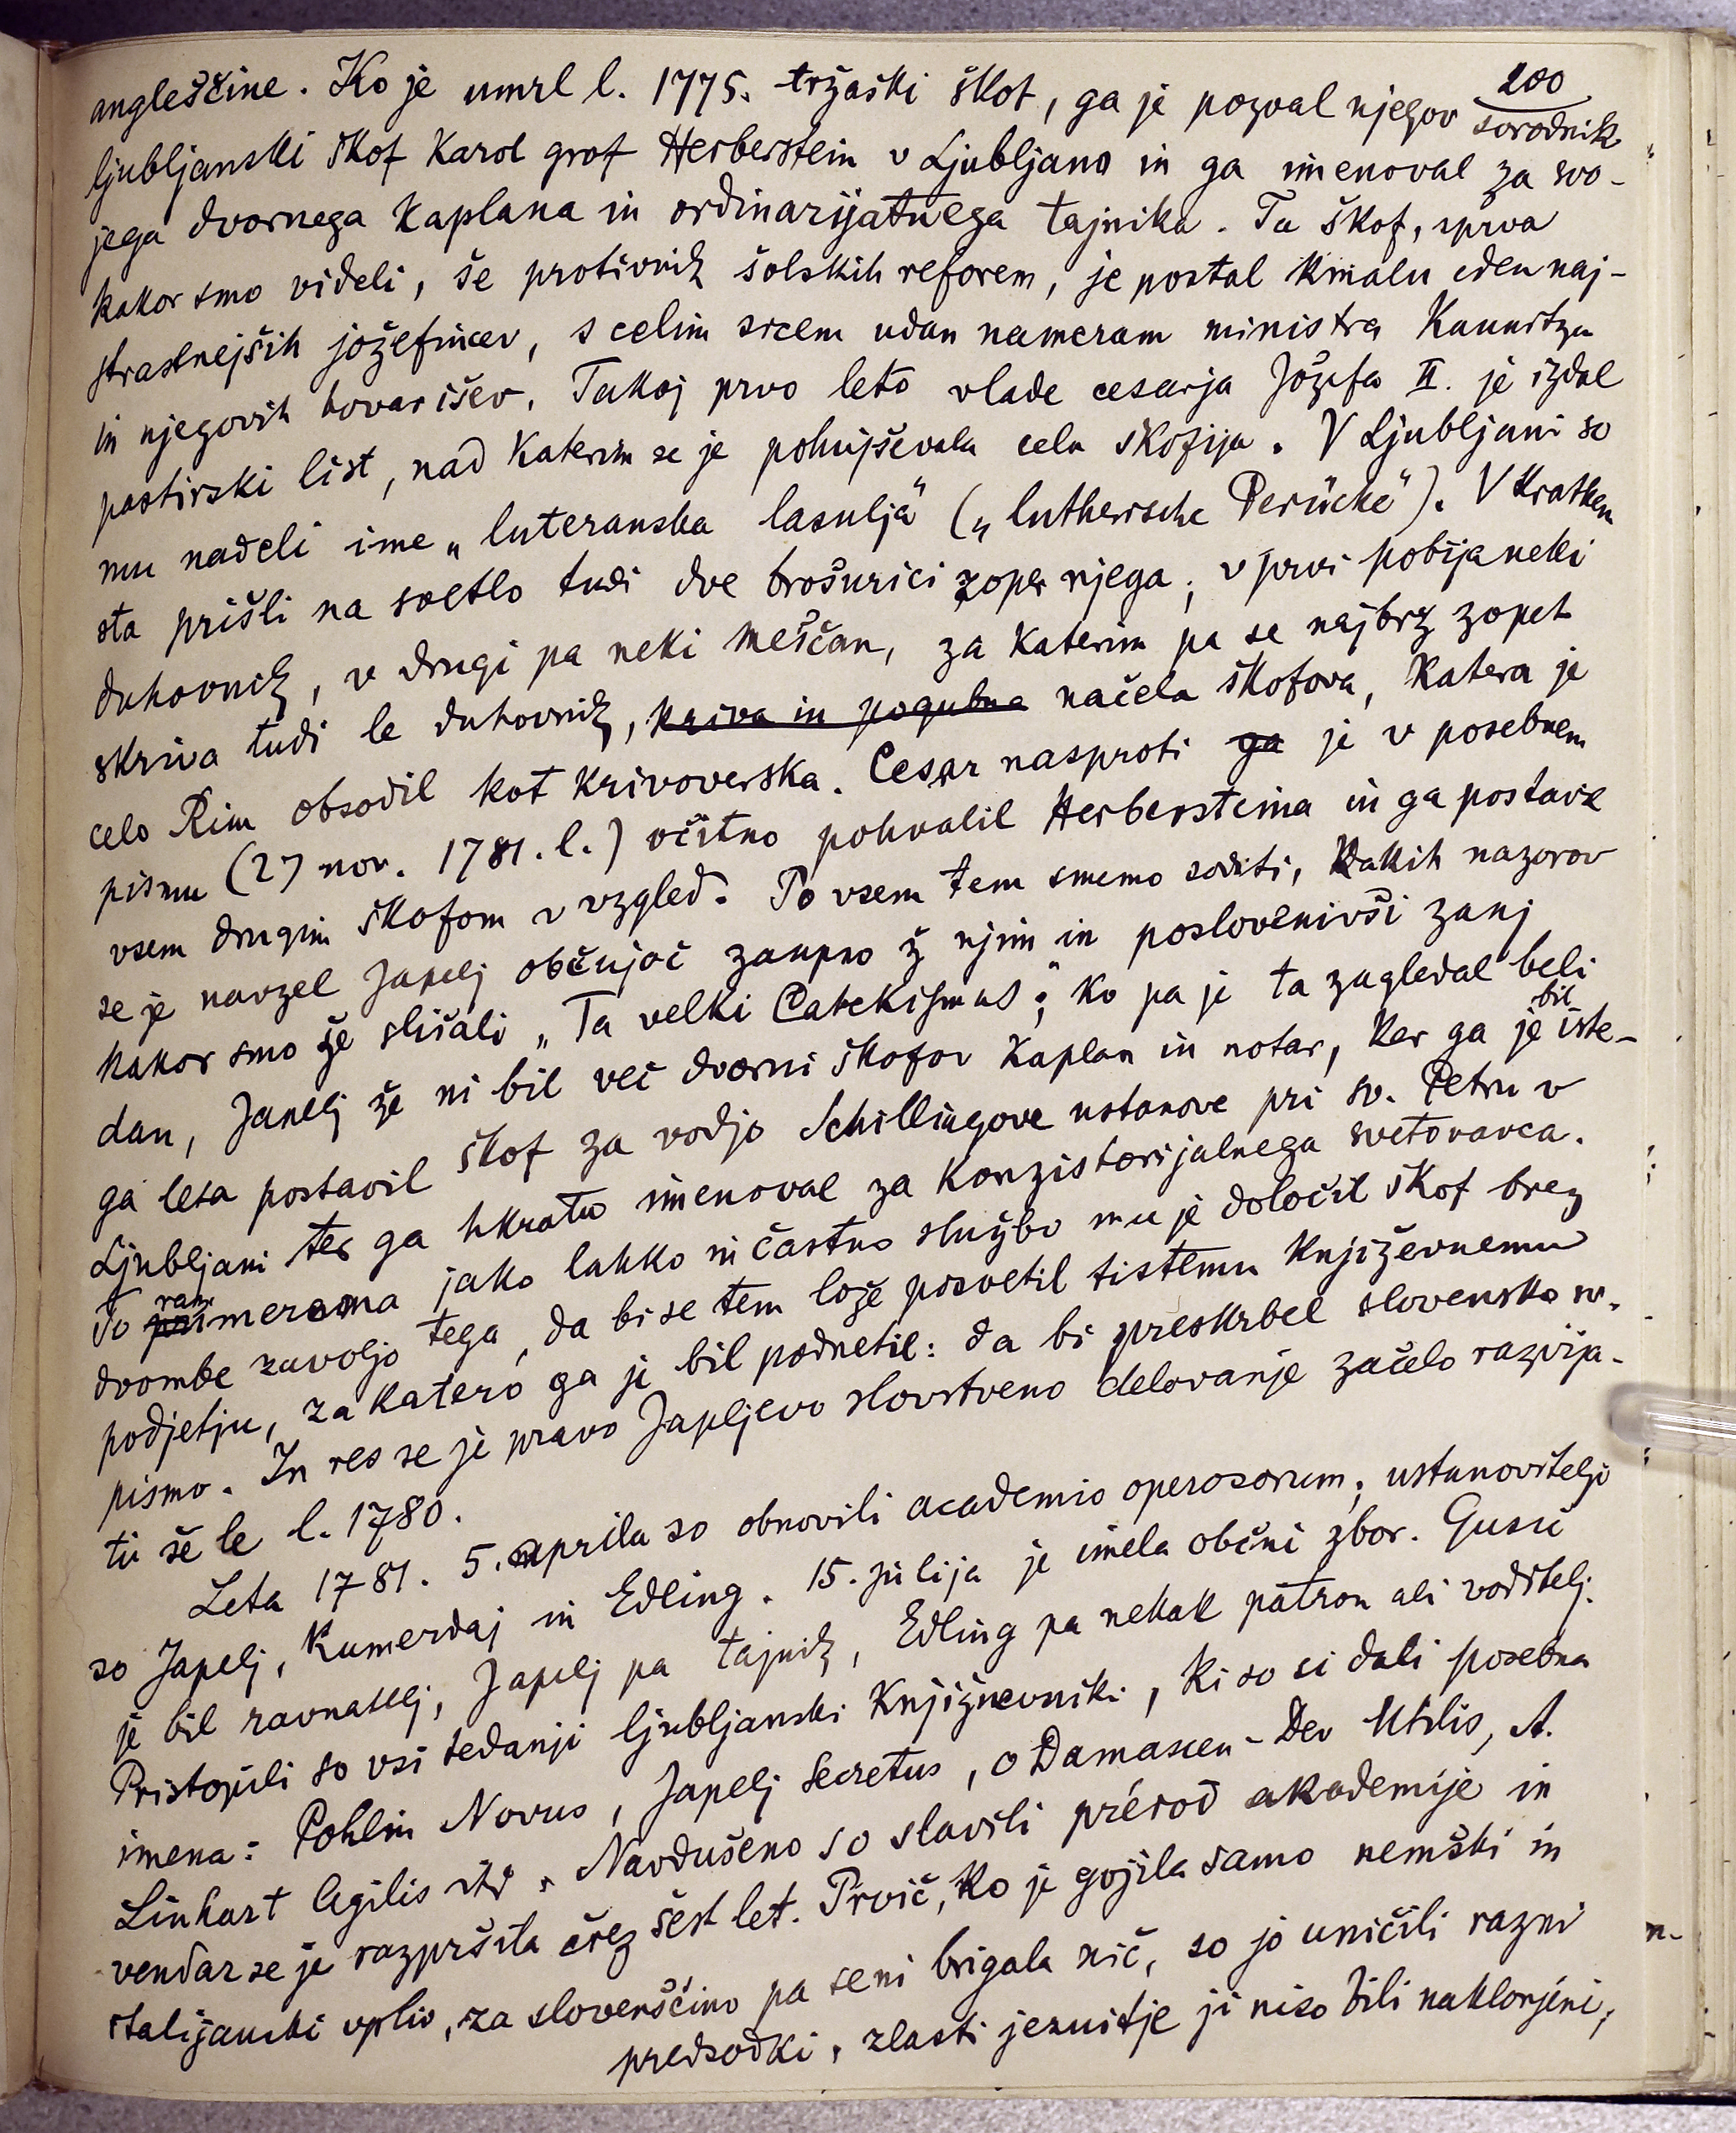 200
angleščine. Ko je umrl l. 1775. tržaški škof, ga je pozval njegov sorodnik
ljubljanski škof Karol grof Herberstein v Ljubljano in ga imenoval za svo-
jega dvornega kaplana in ordinarijatnega tajnika. Ta škof, sprva
kakor smo videli, še protivnik šolskih reform, je postal kmalu eden naj-
strastnejših jožefincev, s celim srcem udan nameram ministra Kaunitza
in njegovih tovarišev. Takoj prvo leto vlade cesarja Jožefa II. je izdal
pastirski list, nad katerim se je pohujševala cela škofija. V Ljubljani so
mu nadeli ime „luteranska lasulja" („lutherische Perücke"). V kratkem
sta prišli na svetlo tudi dve brošurici zoper njega; v prvi pobija neki
duhovnik, v drugi pa neki meščan, za katerim pa se najbrž zopet
skriva tudi le duhovnik, kriva in pogubna načela škofova, katera je
celo Rim obsodil kot krivoverska. Cesar nasproti ga je v posebnem
pismu (27 nov. 1781. l.) očitno pohvalil Herbersteina in ga postavil
vsem drugim škofom v vzgled. Po vsem tem smemo soditi, kakih nazorov
se je navzel Japelj občujoč zaupno ž njim in poslovenivši zanj
kakor smo že slišali „Ta velki Catekismus"; ko pa je ta zagledal beli
dan, Japelj že ni bil več dvorni škofov kaplan in notar, ker ga je bil iste-
ga leta postavil škof za vodjo Schillingove ustanove pri sv. Petru v
Ljubljani ter ga hkratu imenoval za konzistorijalnega svetovavca.
To primeroma razmeroma jako lahko in častno službo mu je določil škof brez
dvombe zavoljo tega, da bi se tem lože posvetil tistemu književnemu
podjetju, za katero ga je bil podnetil: da bi preskrbel slovensko sv.
pismo. In res se je pravo Japljevo slovstveno delovanje začelo razvija-
ti še le l. 1780.
Leta 1781. 5. aprila so obnovili academio operosorum; ustanovitelji
so Japelj, Kumerdaj in Edling. 15. julija je imela občni zbor. Gusič
je bil ravnatelj, Japelj pa tajnik, Edling pa nekak patron ali voditelj.
Pristopili so vsi tedanji ljubljanski književniki, ki so si dali posebna
imena: Pohlin Novus, Japelj Secretus, O Damascen-Dev Utilis, A.
Linhart Agilis itd. Navdušeno so slavili prérod akademije in
vendar se je razpršila črez šest let. Prvič, ko je gojila samo nemški in
italijanski vpliv, za slovenščino pa se ni brigala nič, so jo uničili razni
predsodki, zlasti jezuitje ji niso bili naklonjeni;